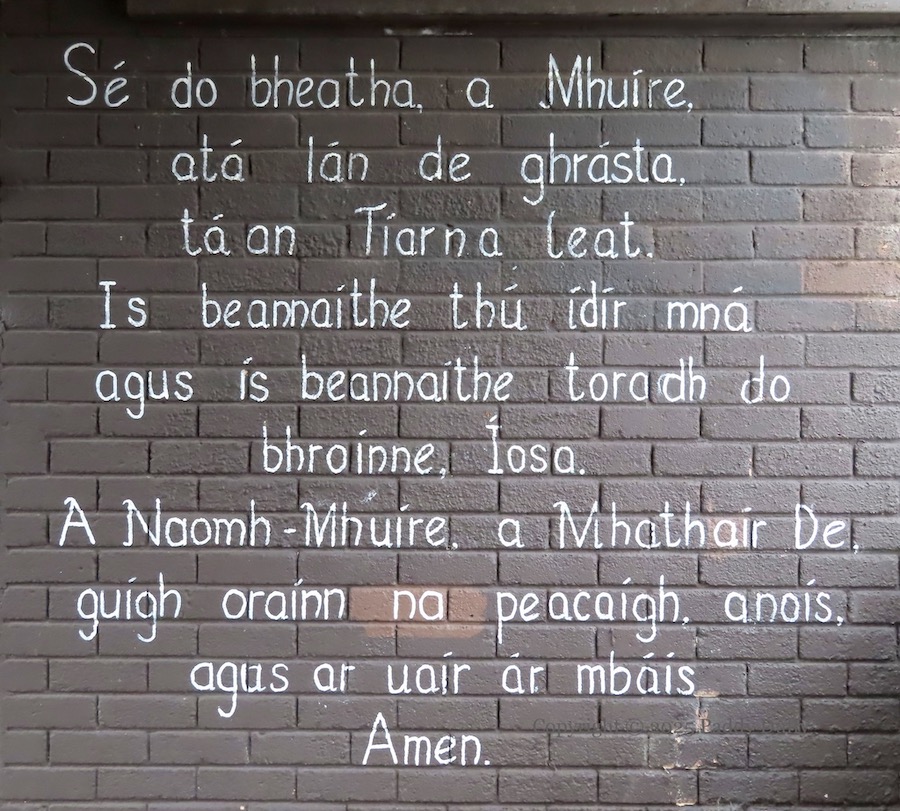 Sé do bheatha, a Mhuire,
atá lán de ghrásta,
tá an Tiarna leat.
Is beannaithe thú idir mná
agus is beannaithe toradh do
bhroinne, Íosa.
A Naomh-Mhuire, a Mhathair De,
guigh orainn na peacaigh, anois,
agus ar uair ár mbáis
Amen.
Copyright ©